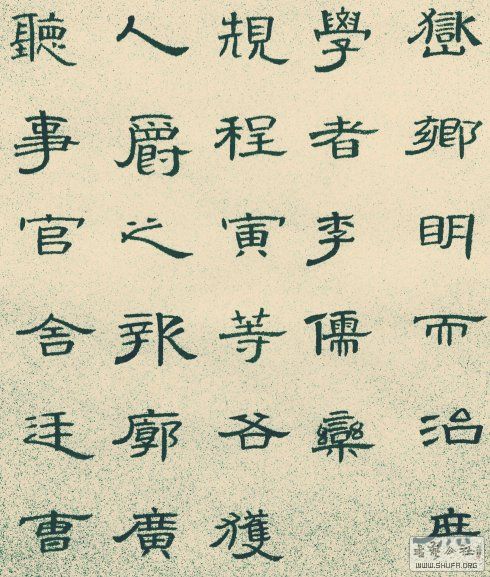 嶽鄉明而治庶
學者李儒欒
規程寅等各獲
人爵之報廓廣
聽事官舍廷曹
WWW.SHUFA.ORG